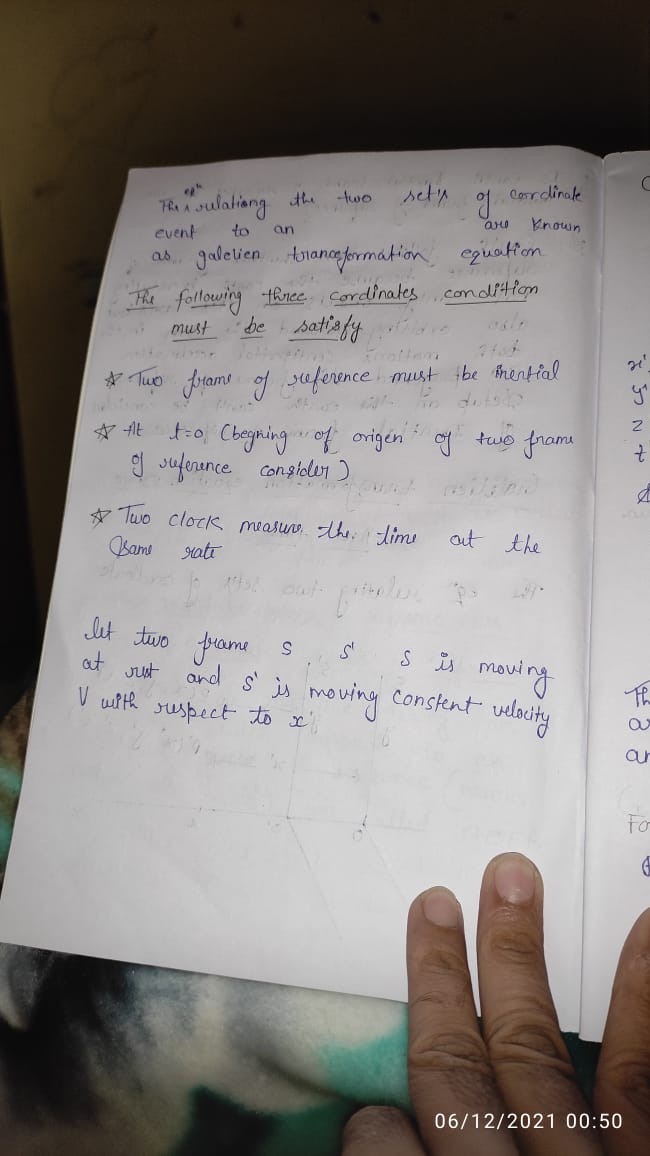 The eqn relationg the two set's of cordinate
event to an are known
as galelien tranceformation equation
The following three cordinates condition
must be satisfy
☆ Two frame of reference must be inertial
☆ At t=0 (begning of origen of two frame
of reference consider)
☆ Two clock measure the time at the
same rate
let two frame S S' S is moving
at rest and S' is moving constent velocity
V with respect to x'
x'
y'
z
t
Th
ar
an
Fo
06/12/2021 00:50